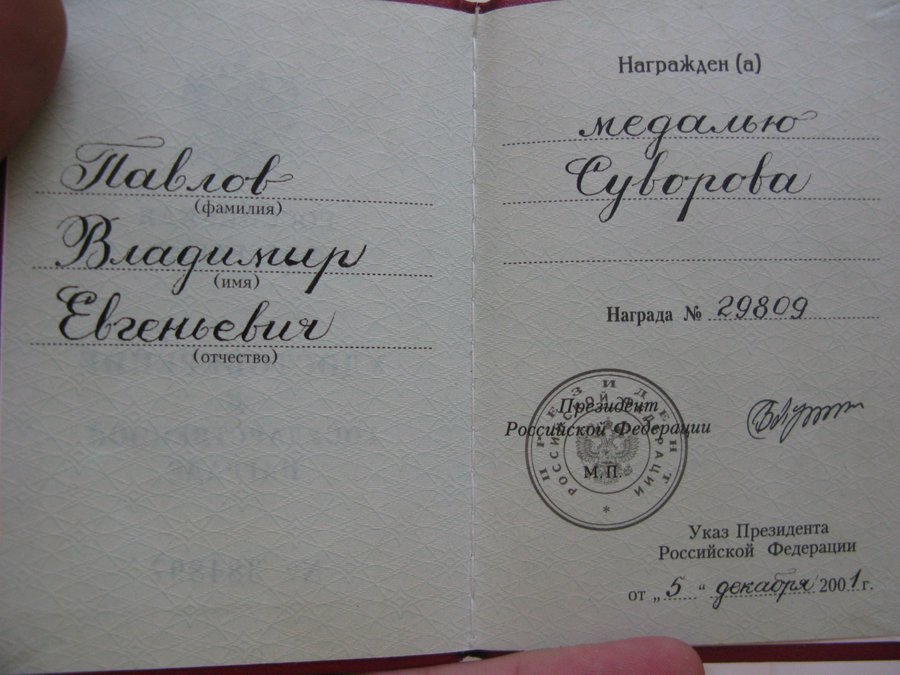 Павлов
(фамилия)
Владимир
(имя)
Евгеньевич
(отчество)
Награжден (а)
медалью
Суворова
Награда № 29809
Президент
Российской Федерации
М.П.
ПРЕЗИДЕНТ
РОССИЙСКОЙ ФЕДЕРАЦИИ
Указ Президента
Российской Федерации
от „5“ декабря 2001 г.